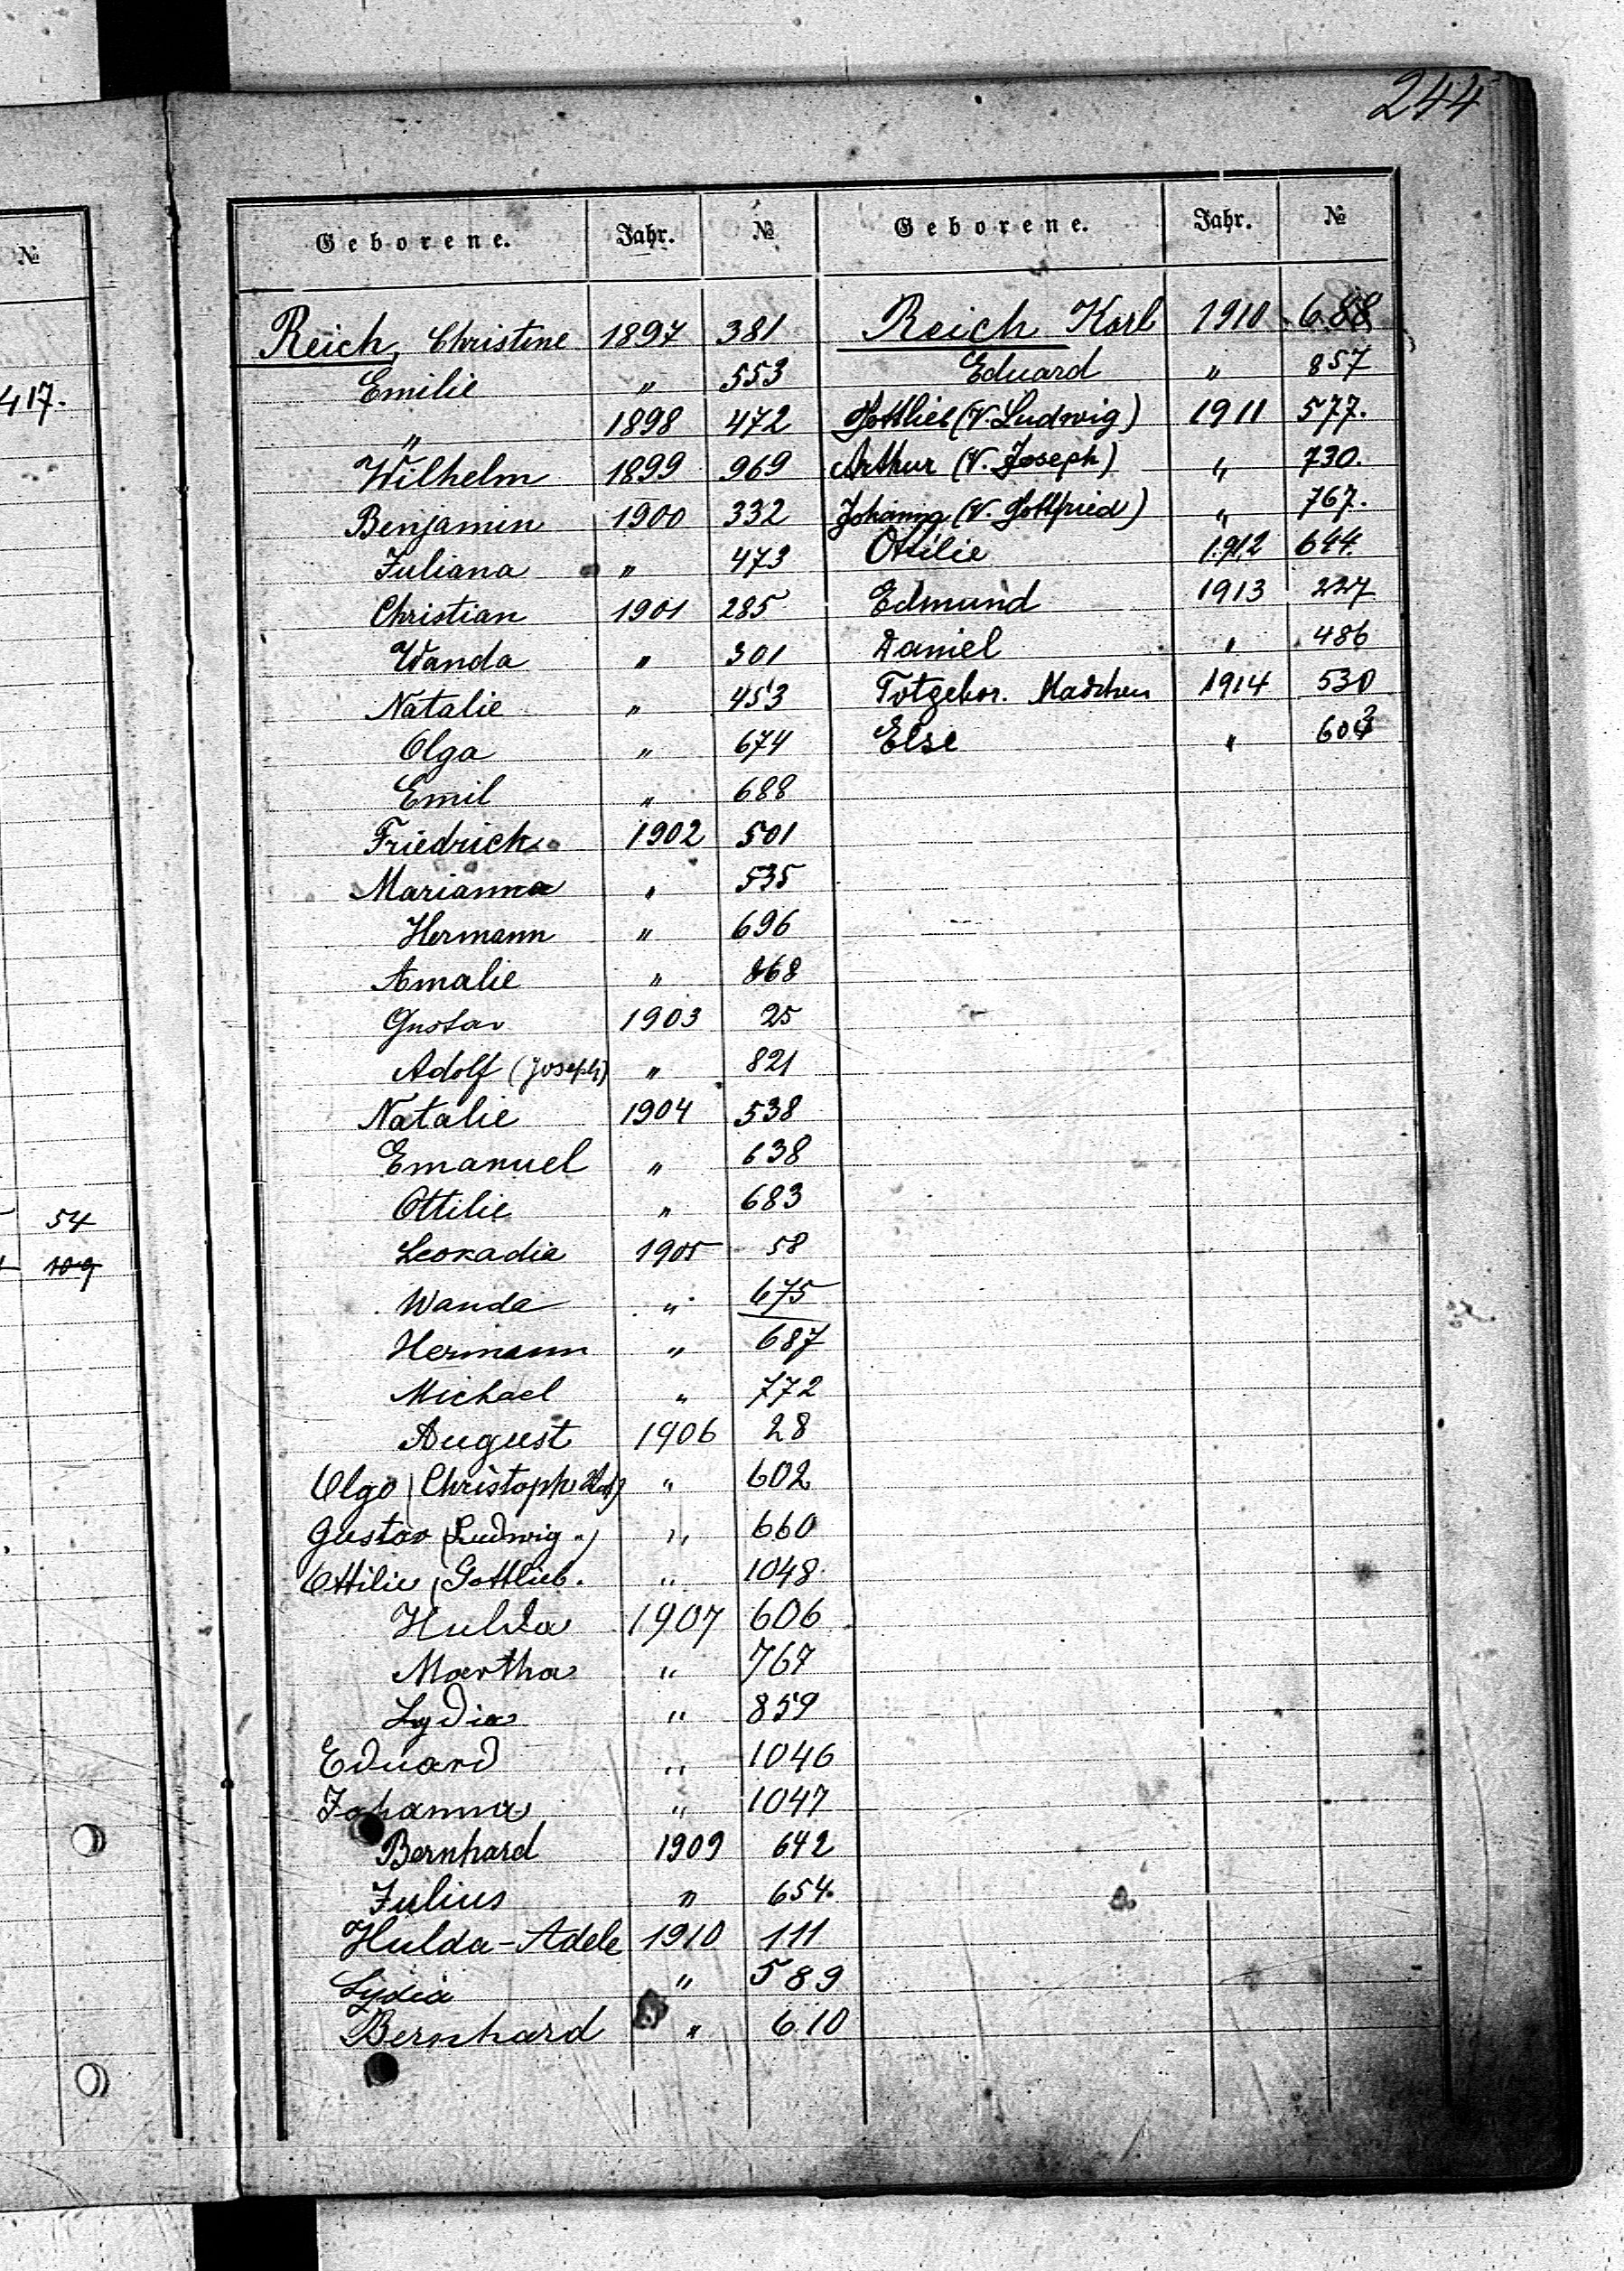 244
№
417.
54
109
Geborene. Jahr. №
Reich, Christine 1897 381
Emilie " 553
" 1898 472
Wilhelm 1899 969
Benjamin 1900 332
Juliana " 473
Christian 1901 285
Wanda " 301
Natalie " 453
Olga " 674
Emil " 688
Friedrich 1902 501
Marianna " 535
Hermann " 696
Amalie " 868
Gustav 1903 25
Adolf (Joseph) " 821
Natalie 1904 538
Emanuel " 638
Ottilie " 683
Leokadia 1905 58
Wanda " 675
Hermann " 687
Michael " 772
August 1906 28
Olga (Christoph " 602
Gustav (Ludwig ") " 660
Ottilie (Gottlieb. " 1048
Hulda 1907 606
Martha " 767
Lydia " 859
Eduard " 1046
Johanna " 1047
Bernhard 1909 642
Julius " 654.
Hulda-Adele 1910 111
Lydia " 589
Bernhard " 610
Geborene. Jahr. №
Reich Karl 1910 688
Eduard " 857
Gottlieb (V. Ludwig) 1911 577.
Arthur (V. Joseph) " 730.
Johanna (V. Gottfried) " 767.
Ottilie 1912 644.
Edmund 1913 227
Daniel " 486
Totgebor. Mädchen 1914 530
Else " 603